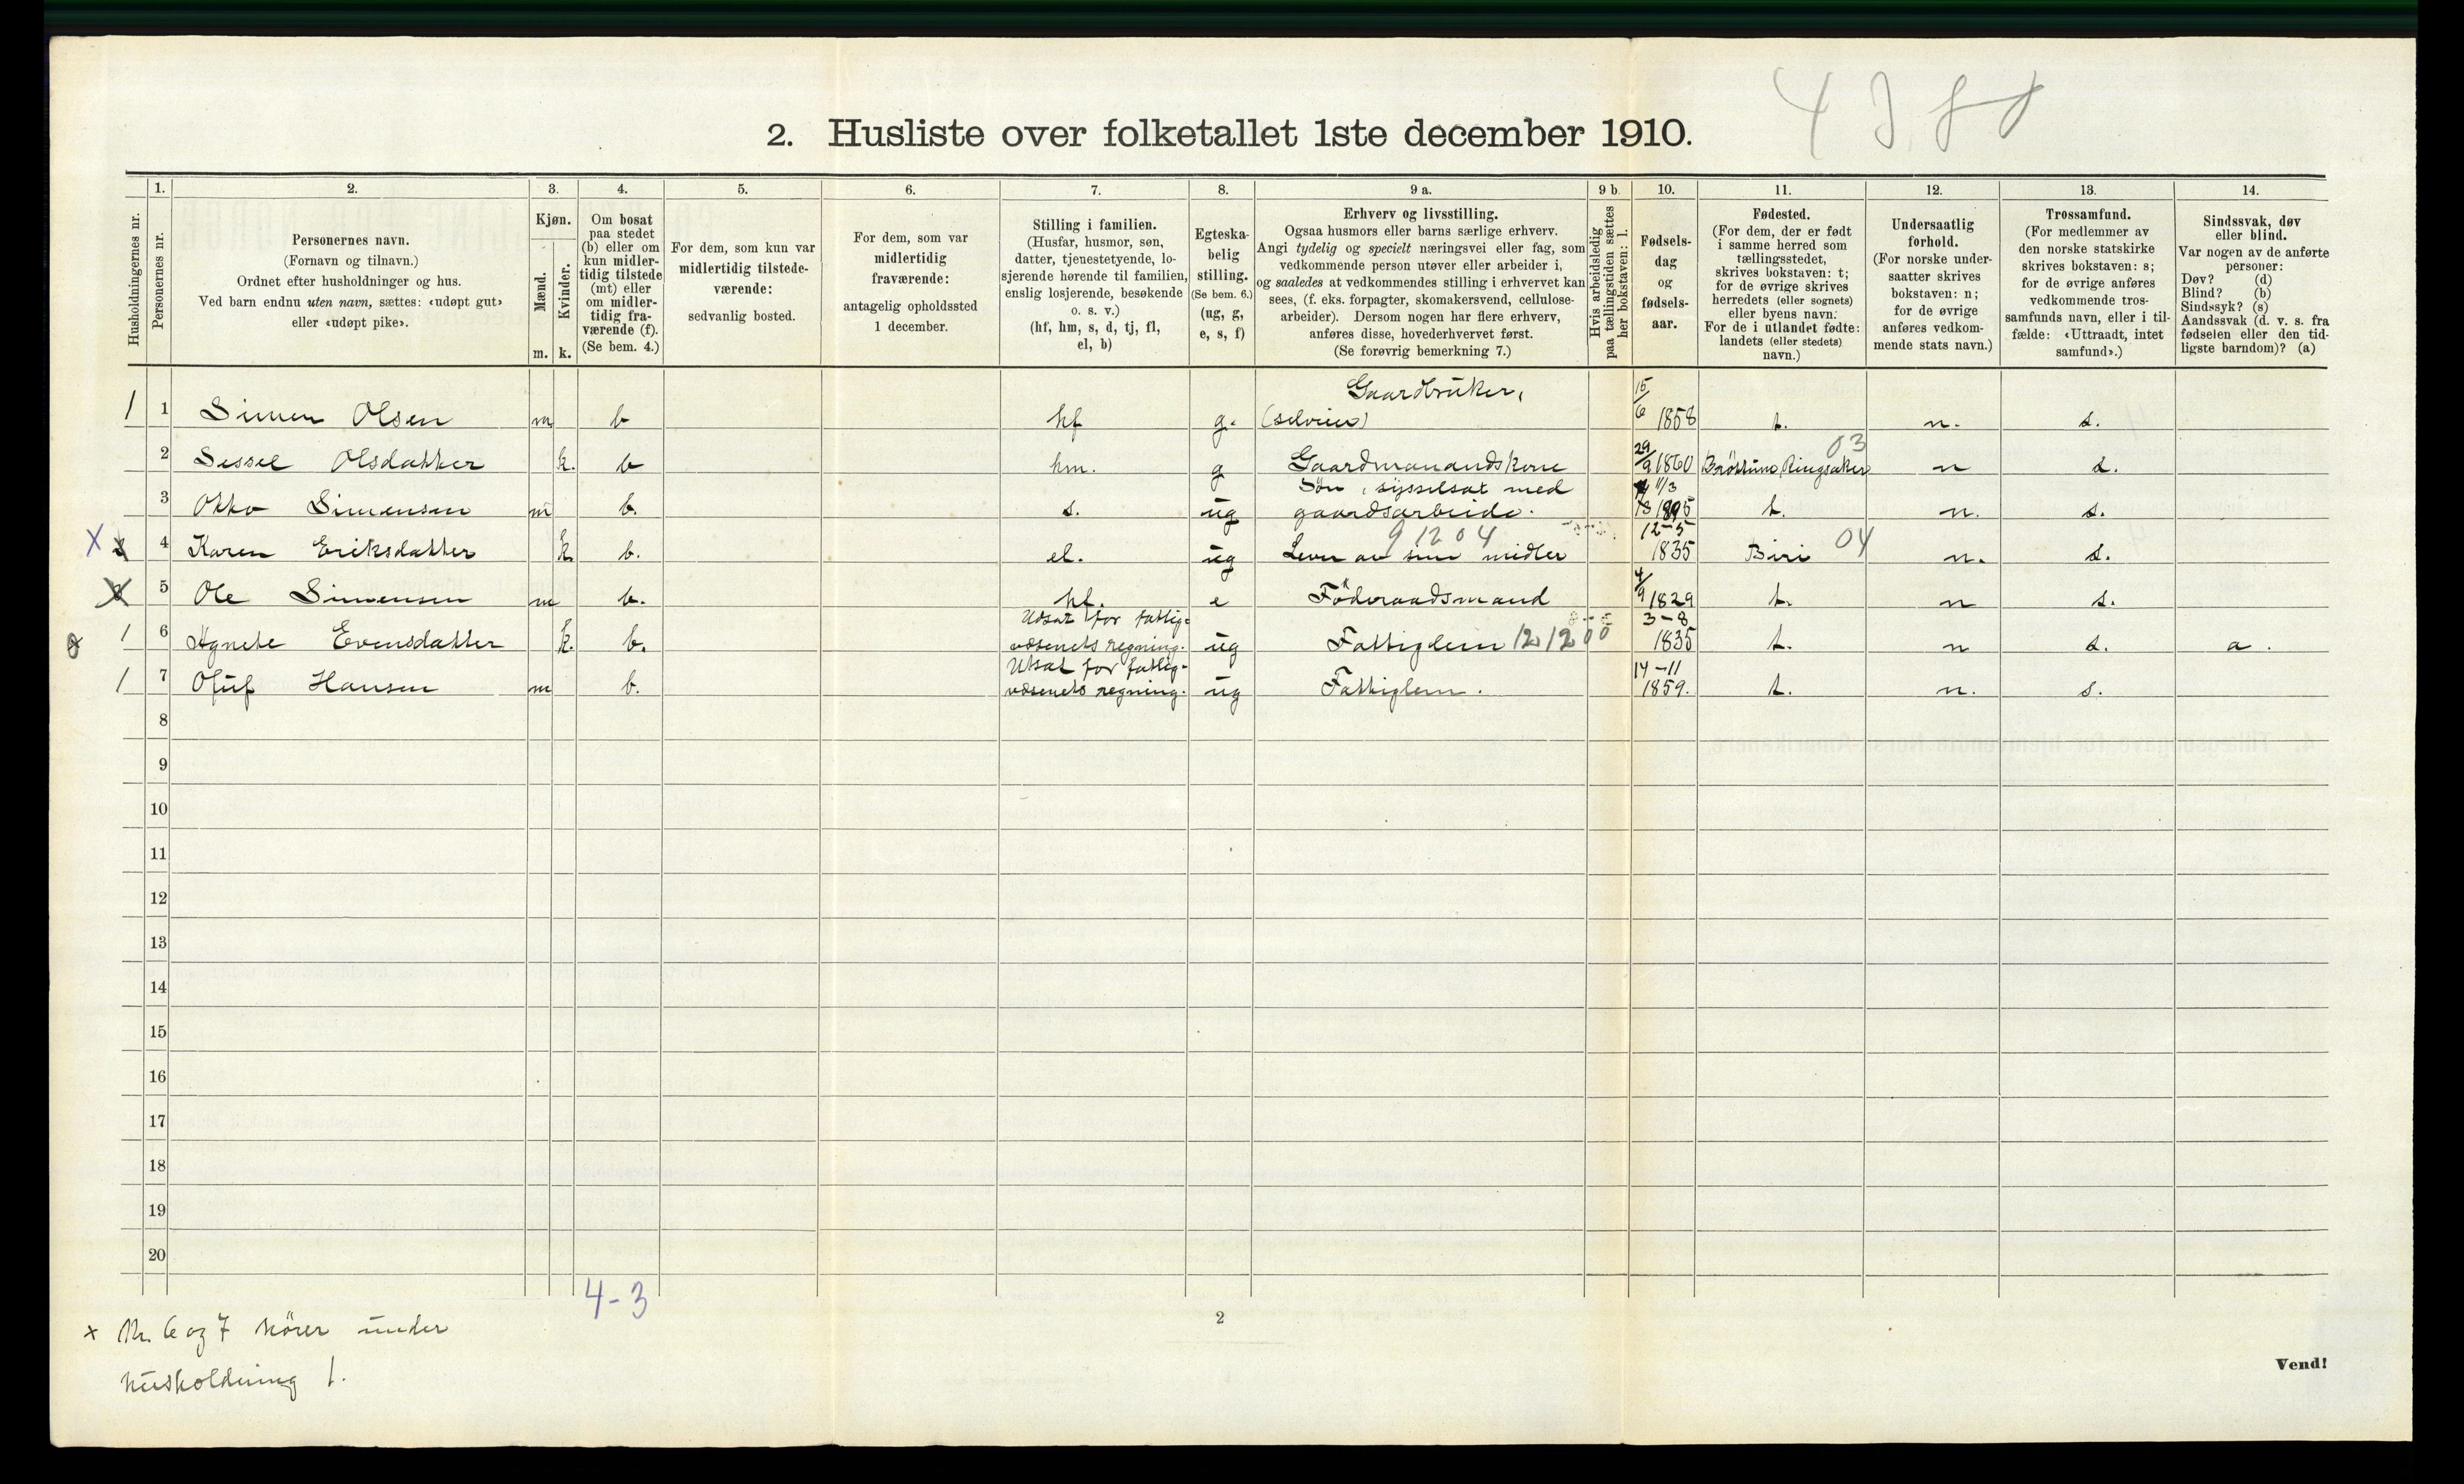 4388
2. Husliste over folketallet 1ste december 1910.
Husholdningernes nr.
1. Personernes nr.
2. Personernes navn.
(Fornavn og tilnavn.)
Ordnet efter husholdninger og hus.
Ved barn endnu uten navn, sættes: «udøpt gut»
eller «udøpt pike».
3. Kjøn.
Mænd. m.
Kvinder. k.
4. Om bosat
paa stedet
(b) eller om
kun midler-
tidig tilstede
(mt) eller
om midler-
tidig fra-
værende (f).
(Se bem. 4.)
5. For dem, som kun var
midlertidig tilstede-
værende:
sedvanlig bosted.
6. For dem, som var
midlertidig
fraværende:
antagelig opholdssted
1 december.
7. Stilling i familien.
(Husfar, husmor, søn,
datter, tjenestetyende, lo-
sjerende hørende til familien,
enslig losjerende, besøkende
o. s. v.)
(hf, hm, s, d, tj, fl,
el, b)
8. Egteska-
belig
stilling.
(Se bem. 6.)
(ug, g,
e, s, f)
9 a. Erhverv og livsstilling.
Ogsaa husmors eller barns særlige erhverv.
Angi tydelig og specielt næringsvei eller fag, som
vedkommende person utøver eller arbeider i,
og saaledes at vedkommendes stilling i erhvervet kan
sees, (f. eks. forpagter, skomakersvend, cellulose-
arbeider). Dersom nogen har flere erhverv,
anføres disse, hovederhvervet først.
(Se forøvrig bemerkning 7.)
9 b. Hvis arbeidsledig
paa tællingstiden sættes
her bokstaven: l.
10. Fødsels-
dag
og
fødsels-
aar.
11. Fødested.
(For dem, der er født
i samme herred som
tællingsstedet,
skrives bokstaven: t;
for de øvrige skrives
herredets (eller sognets)
eller byens navn.
For de i utlandet fødte:
landets (eller stedets)
navn.)
12. Undersaatlig
forhold.
(For norske under-
saatter skrives
bokstaven: n;
for de øvrige
anføres vedkom-
mende stats navn.)
13. Trossamfund.
(For medlemmer av
den norske statskirke
skrives bokstaven: s;
for de øvrige anføres
vedkommende tros-
samfunds navn, eller i til-
fælde: «Uttraadt, intet
samfund».)
14. Sindssvak, døv
eller blind.
Var nogen av de anførte
personer:
Døv? (d)
Blind? (b)
Sindssyk? (s)
Aandssvak (d. v. s. fra
fødselen eller den tid-
ligste barndom)? (a)
1 1 Simen Olsen m b hf g. Gaardbruker, (selveier) 15/6 1858 t. n. s.
2 Sessel Olsdatter k. b hm. g Gaardmanandskone 29/9 1860 Brøttum, Ringsaker 03 n s.
3 Otto Simensen m b. s. ug Søn, sysselsat med gaardsarbeide. 11/3 1895 t. n. s.
X 4 Karen Eriksdatter k b. el. ug Lever av sine midler 9 12 04 12-5 1835 Biri 04 n. s.
5 Ole Simensen m b. hf. e Föderaadsmand 4/9 1829 t. n s.
1 6 Agnete Evensdatter k. b. Udsat for fattig- væsenets regning. ug Fattiglem 12 12 00 3-8 1835 t. n s. a.
1 7 Oluf Hansen m b. Utsat for fattig- væsenets regning. ug Fattiglem. 14-11 1859. t. n. s.
8
9
10
11
12
13
14
15
16
17
18
19
20
4-3
x Nr. 6 og 7 hörer under
husholdning 1.
2
Vend!